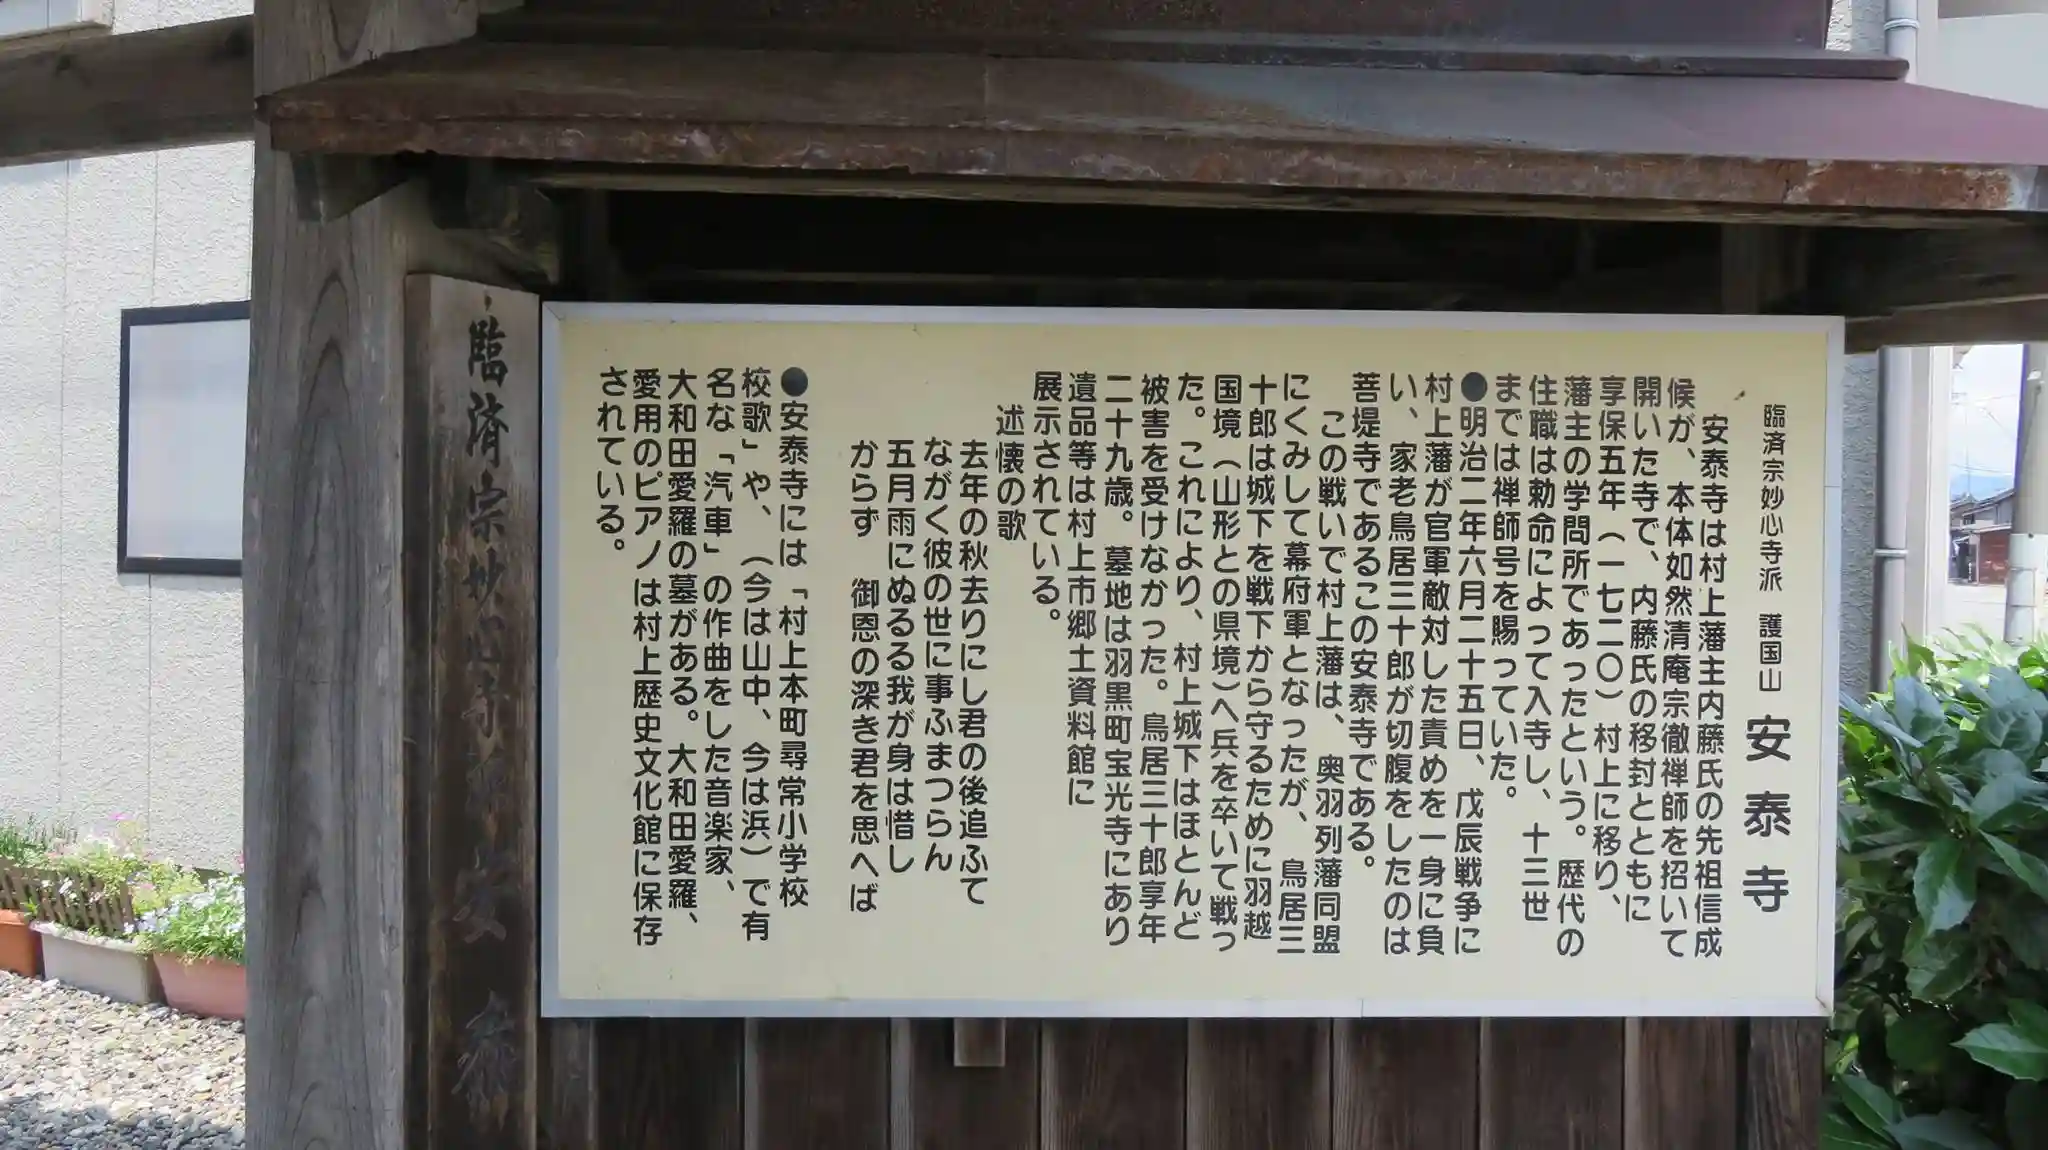 臨済宗妙心寺派 護国山 安泰寺
安泰寺は村上藩主内藤氏の先祖信成
候が、本体如然清庵宗徹禅師を招いて
開いた寺で、内藤氏の移封とともに
享保五年(一七二〇)村上に移り、
藩主の学問所であったという。歴代の
住職は勅命によって入寺し、十三世
までは禅師号を賜っていた。
●明治二年六月二十五日、戊辰戦争に
村上藩が官軍敵対した責めを一身に負
い、家老鳥居三十郎が切腹をしたのは
菩堤寺であるこの安泰寺である。
この戦いで村上藩は、奥羽列藩同盟
にくみして幕府軍となったが、鳥居三
十郎は城下を戦下から守るために羽越
国境(山形との県境)へ兵を卒いて戦っ
た。これにより、村上城下はほとんど
被害を受けなかった。鳥居三十郎享年
二十九歳。墓地は羽黒町宝光寺にあり
遺品等は村上市郷土資料館に
展示されている。
述懐の歌
去年の秋去りにし君の後追ふて
ながく彼の世に事ふまつらん
五月雨にぬるる我が身は惜し
からず 御恩の深き君を思へば
●安泰寺には「村上本町尋常小学校
校歌」や、(今は山中、今は浜)で有
名な「汽車」の作曲をした音楽家、
大和田愛羅の墓がある。大和田愛羅、
愛用のピアノは村上歴史文化館に保存
されている。
臨済宗妙心寺派安泰